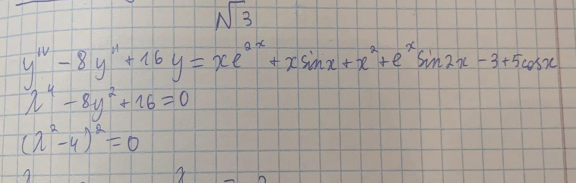 √3
y^IV - 8y'' + 16y = xe^2x + x sin x + x^2 + e^x sin 2x - 3 + 5cos x
λ^4 - 8y^2 + 16 = 0
(λ^2 - 4)^2 = 0